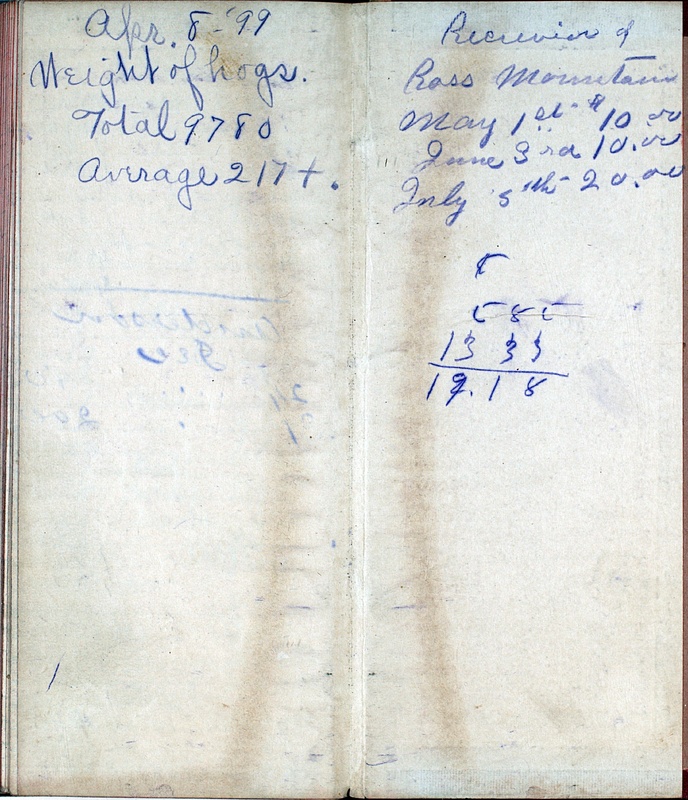 Apr. 8-'99
Weight of hogs.
Total 9780
Average 217+.
Recievion of
Ross Mountain
May 1st $10.00
June 3rd 10.00
July 5th 20.00
5
5 85
13 33
19.18